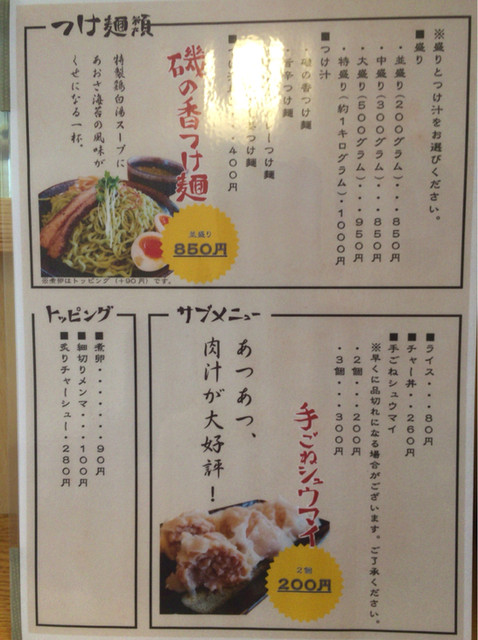 つけ麺類
※盛りとつけ汁をお選びください。
■盛り
・並盛り(200グラム)・・・850円
・中盛り(300グラム)・・・850円
・大盛り(500グラム)・・・950円
・特盛り(約1キログラム)・1000円
■つけ汁
・磯の香つけ麺
・旨辛つけ麺
つけ麺
つけ麺
・400円
磯の香つけ麺
特製鶏白湯スープに
あおさ海苔の風味が
くせになる一杯、
並盛り
850円
※煮卵はトッピング(+90円)です。
トッピング
■煮卵・・・・・・・90円
■細切りメンマ・・・100円
■炙りチャーシュー・280円
サブメニュー
■ライス・・・80円
■チャー丼・・260円
■手ごねシュウマイ
※早くに品切れになる場合がございます。ご了承ください。
・2個・・・200円
・3個・・・300円
手ごねシュウマイ
あつあつ、
肉汁が大好評!
2個
200円